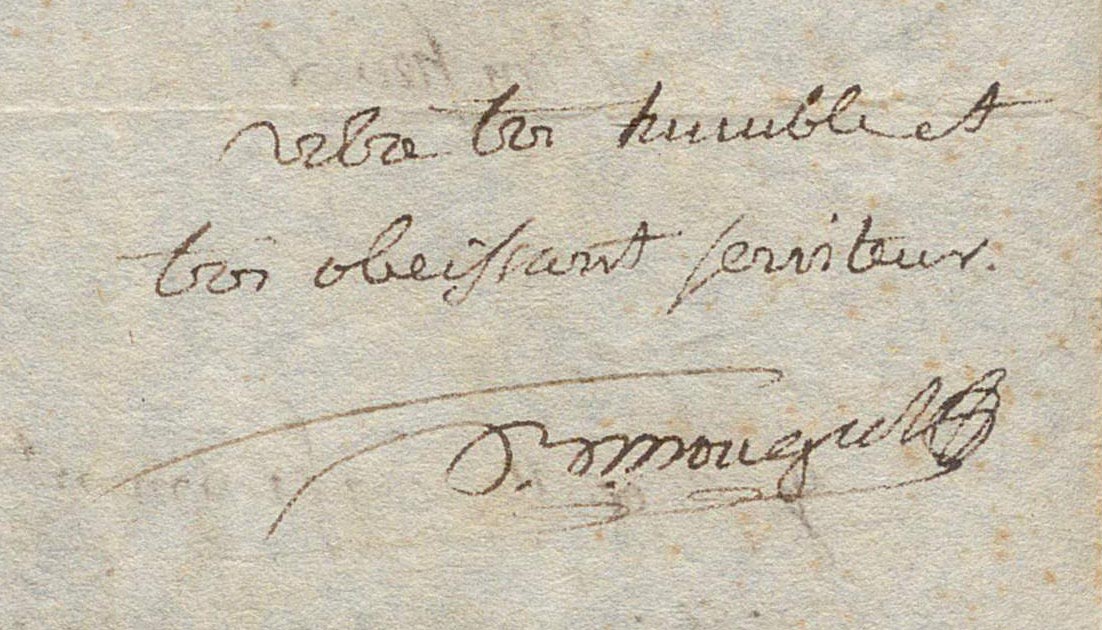 votre tres humble et
tres obeissant serviteur.